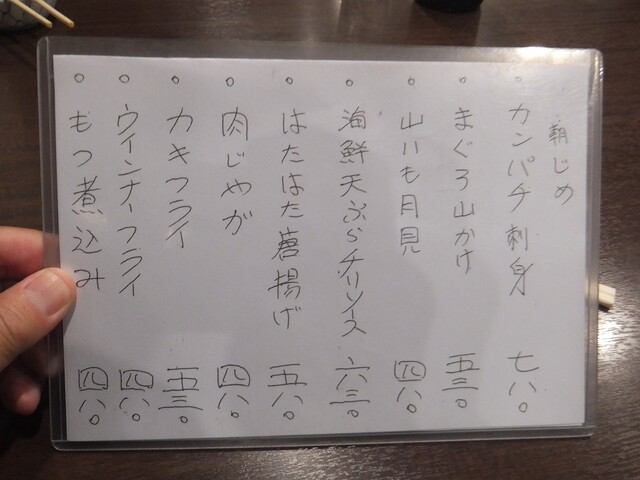 朝じめ
○カンパチ刺身 七八○
○まぐろ山かけ 五三○
○山いも月見 四八○
○海鮮天ぷらチリソース 六三○
○はたはた唐揚げ 五八○
○肉じゃが 四八○
○カキフライ 五三○
○ウインナーフライ 四八○
○もつ煮込み 四八○